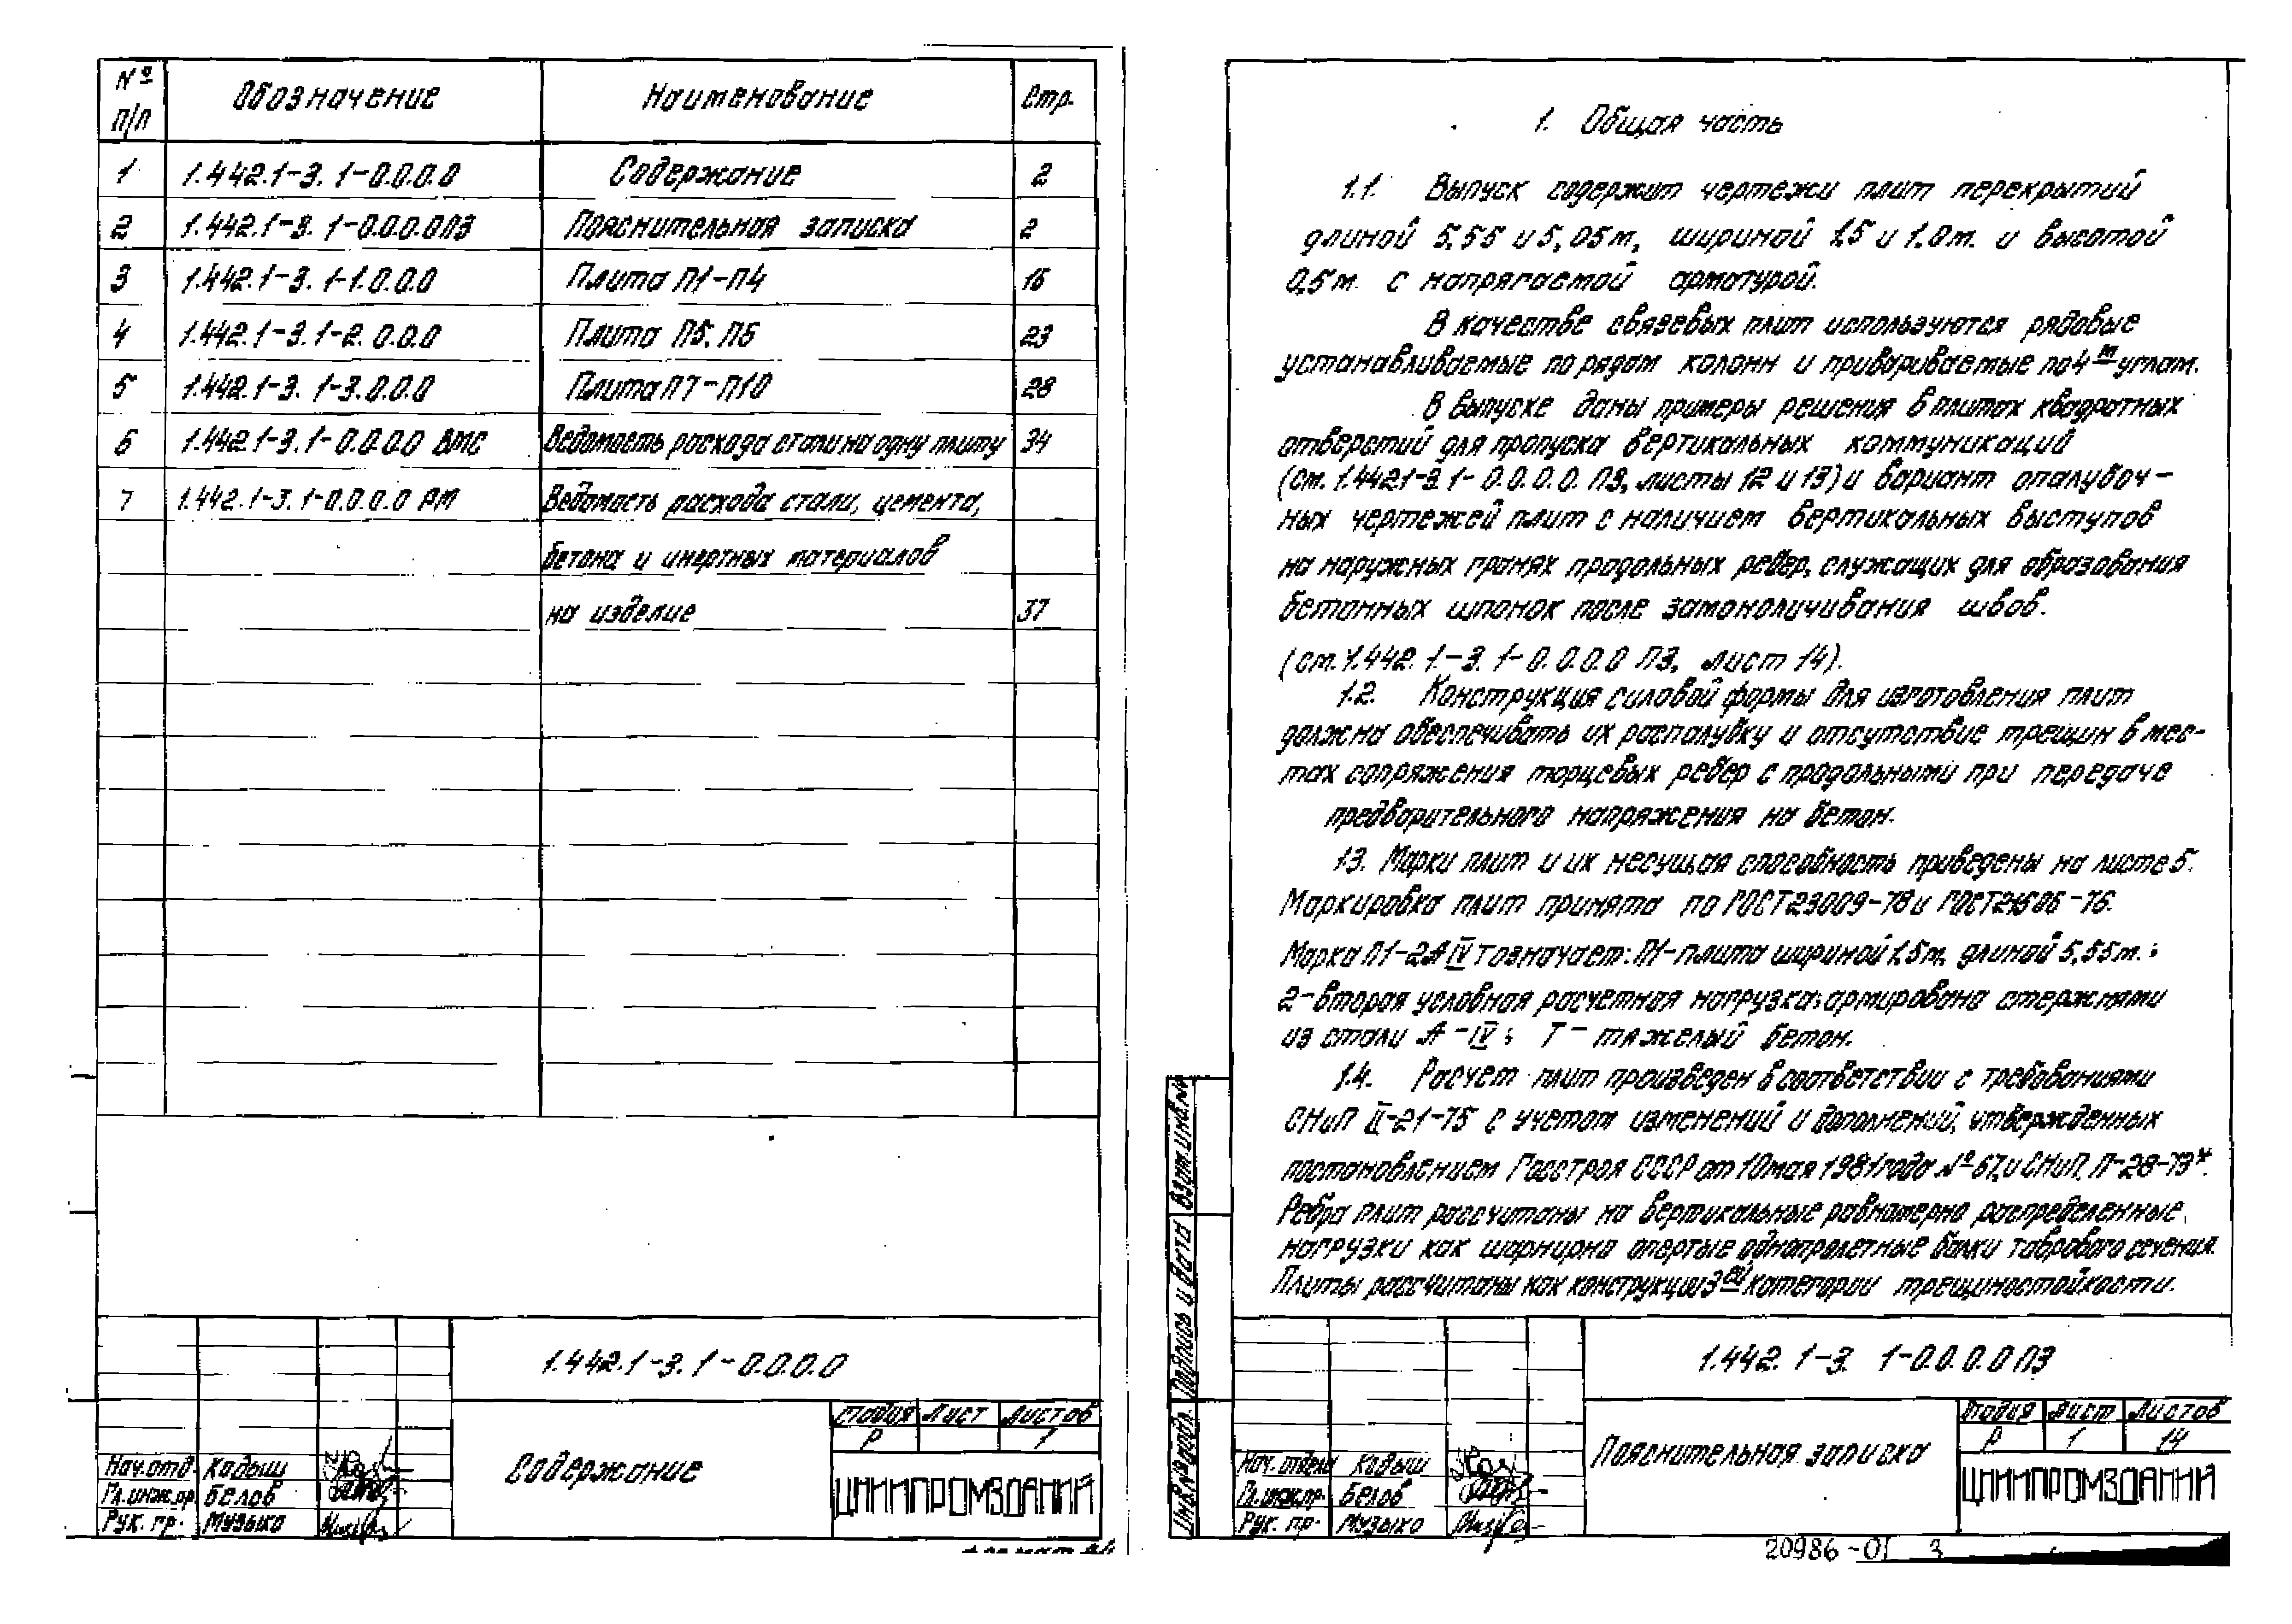 № п/п Обозначение Наименование Стр.
1 1.442.1-3. 1-0.0.0.0 Содержание 2
2 1.442.1-3. 1-0.0.0.0ПЗ Пояснительная записка 2
3 1.442.1-3. 1-1.0.0.0 Плита П1-П4 16
4 1.442.1-3. 1-2.0.0.0 Плита П5, П6 23
5 1.442.1-3. 1-3.0.0.0 Плита П7-П10 28
6 1.442.1-3. 1-0.0.0.0 ВМС Ведомость расхода стали на одну плиту 34
7 1.442.1-3. 1-0.0.0.0 РМ Ведомость расхода стали, цемента,
бетона и инертных материалов
на изделие 37
1.442.1-3. 1-0.0.0.0
Содержание
Стадия Лист Листов
Р 1
ЦНИИПРОМЗДАНИЙ
Нач.отд. Кодыш
Гл.инж.пр. Белов
Рук. гр. Музыко
1. Общая часть
1.1. Выпуск содержит чертежи плит перекрытий
длиной 5,55 и 5,05м, шириной 1,5 и 1.0м. и высотой
0,5м. с напрягаемой арматурой.
В качестве связевых плит используются рядовые
устанавливаемые по рядам колонн и привариваемые по 4м углам.
В выпуске даны примеры решения в плитах квадратных
отверстий для пропуска вертикальных коммуникаций
(см. 1.442.1-3. 1-0.0.0.0. ПЗ, листы 12 и 13) и вариант опалубоч-
ных чертежей плит с наличием вертикальных выступов
на наружных гранях продольных ребер, служащих для образования
бетонных шпонок после замоноличивания швов.
(см. 1.442. 1.-3. 1-0.0.0.0 ПЗ, лист 14).
1.2. Конструкция силовой формы для изготовления плит
должна обеспечивать их распалубку и отсутствие трещин в мес-
тах сопряжения торцевых ребер с продольными при передаче
предварительного напряжения на бетон.
1.3. Марки плит и их несущая способность приведены на листе 5.
Маркировка плит принята по ГОСТ 23009-78 и ГОСТ 21506-76.
Марка П1-2АIVТ означает: П1-плита шириной 1,5м, длиной 5,55м.;
2-вторая условная расчетная нагрузка; армирована стержнями
из стали А-IV; Т- тяжелый бетон.
1.4. Расчет плит произведен в соответствии с требованиями
СНиП II-21-75 с учетом изменений и дополнений, утвержденных
постановлением Госстроя СССР от 10 мая 1981 года № 67, и СНиП, П-28-73*.
Ребра плит рассчитаны на вертикальные равномерно распределенные,
нагрузки как шарнирно опертые однопролетные балки таврового сечения.
Плиты рассчитаны как конструкции 3ей категории трещиностойкости.
Инв.№ подл. Подпись и дата Взам.инв.№
1.442. 1-3. 1-0.0.0.0 ПЗ
Пояснительная записка
Стадия Лист Листов
Р 1 14
ЦНИИПРОМЗДАНИЙ
Нач. отдела Кодыш
Гл.инж.пр. Белов
Рук. гр. Музыко
20986-01 3